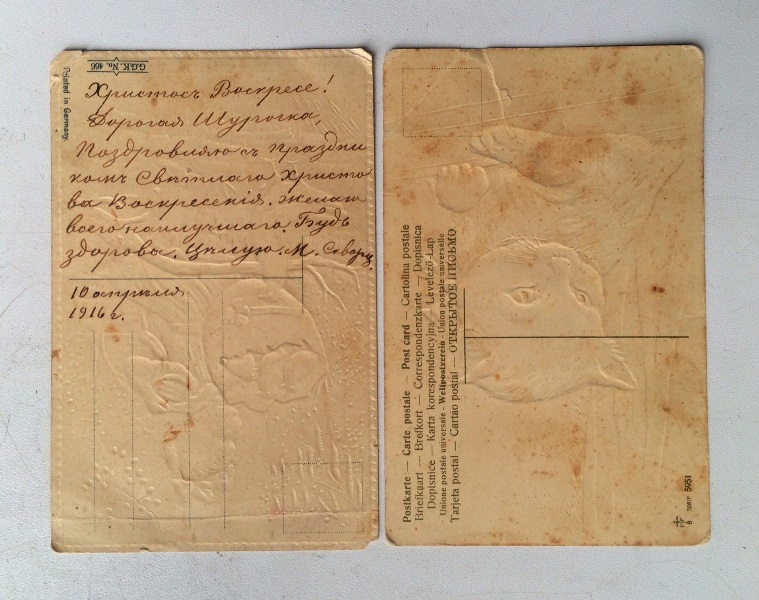 G.G.K. No. 466
Printed in Germany
Христосъ Воскресе!
Дорогая Шурочка,
Поздровляю съ праздни
комъ Свѣтлаго Христо
ва Воскресенія. Желаю
всего наилучшаго. Будь
здорова. Цѣлую. М. Скворц.
10 апрѣля
1916 г.
Postkarte — Carte postale — Post card — Cartolina postale
Briefkaart — Brefkort — Correspondenzkarte — Dopisnica
Dopisnice — Karta korespondencyjna — Levelező-Lap
Unione postale universale - Weltpostverein - Union postale universelle
Tarjeta postal — Cartão postal — ОТКРЫТОЕ ПИСЬМО.
B
SERIE 5051